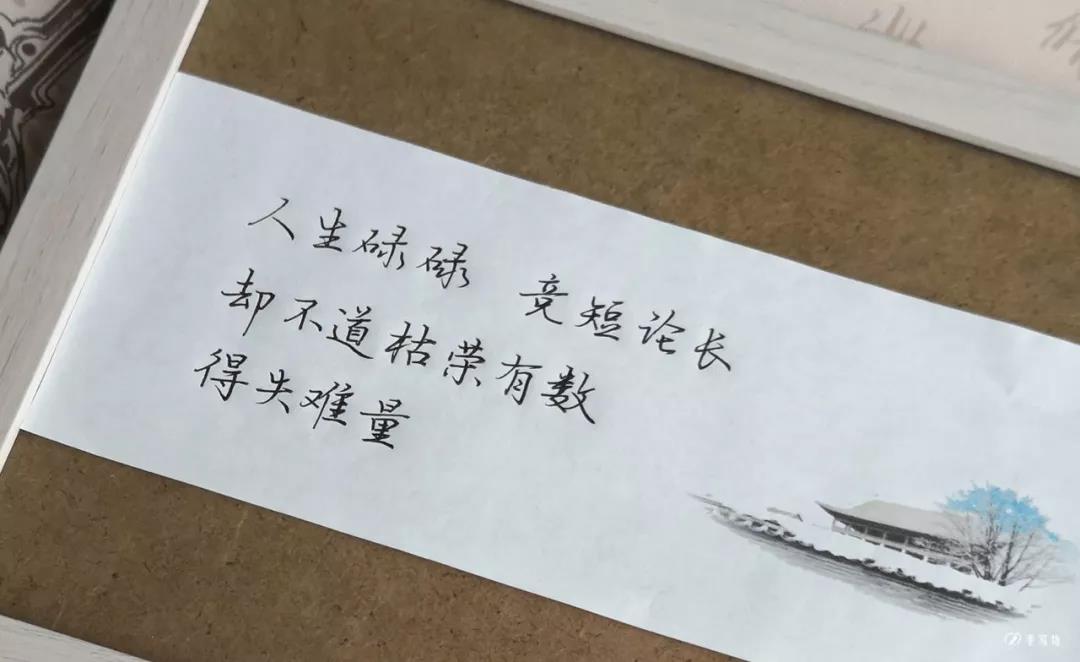 人生碌碌 竞短论长
却不道枯荣有数
得失难量